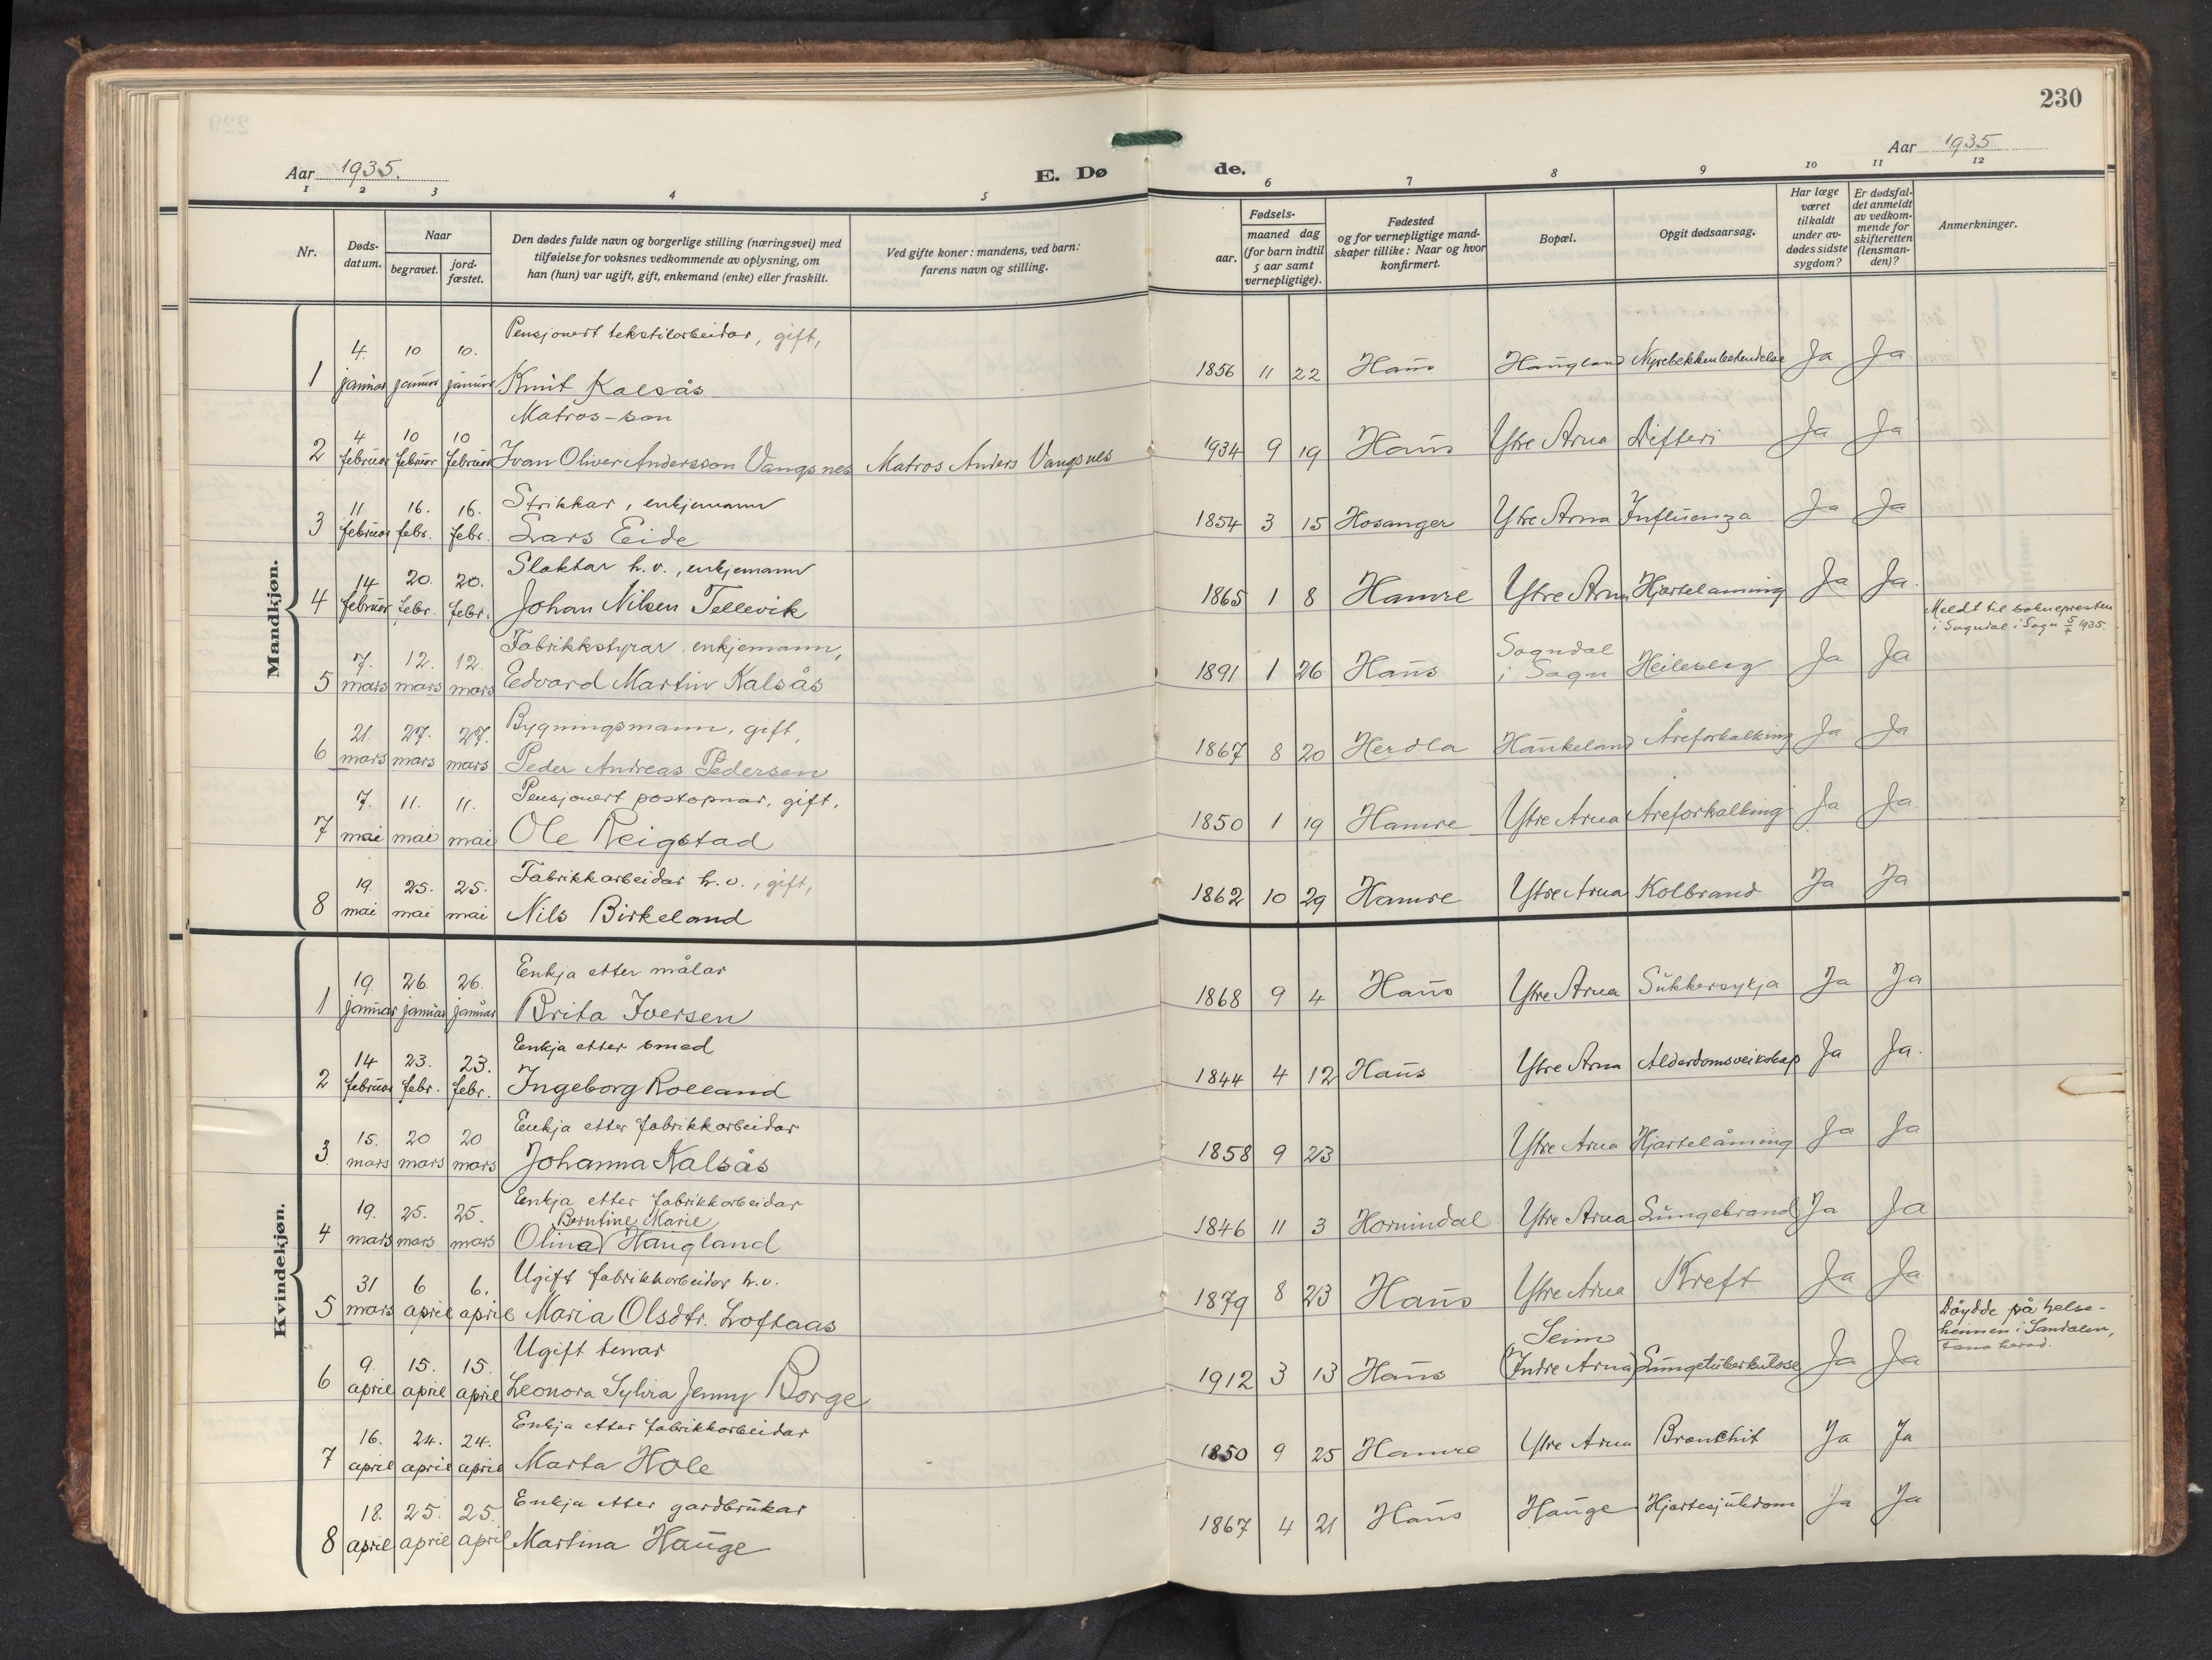 230
Aar 1935.
E. Dø
de.
Aar 1935
1 2 3 4 5 6 7 8 9 10 11 12
Nr.
Døds-
datum.
Naar
begravet.
jord-
fæstet.
Den dødes fulde navn og borgerlige stilling (næringsvei) med
tilføielse for voksnes vedkommende av oplysning, om
han (hun) var ugift, gift, enkemand (enke) eller fraskilt.
Ved gifte koner: mandens, ved barn:
farens navn og stilling.
Fødsels-
aar.
maaned dag
(for barn indtil
5 aar samt
vernepligtige).
Fødested
og for vernepligtige mand-
skaper tillike: Naar og hvor
konfirmert.
Bopæl.
Opgit dødsaarsag.
Har læge
været
tilkaldt
under av-
dødes sidste
sygdom?
Er dødsfal-
det anmeldt
av vedkom-
mende for
skifteretten
(lensman-
den)?
Anmerkninger.
Mandkjøn.
Pensjonert tekstilarbeidar, gift,
1 4. januar 10 januar 10. januar Knut Kalsås 1856 11 22 Haus Haugland Nyrebekkenbetendelse Ja Ja
Matros-son
2 4 februar 10 februar 10 februar Ivan Oliver Andersson Vangsnes Matros Anders Vangsnes 1934 9 19 Haus Ytre Arna Difteri Ja Ja
Strikkar, enkjemann
3 11 februar 16. febr. 16. febr. Lars Eide 1854 3 15 Hosanger Ytre Arna Influenza Ja Ja
Slaktar h.v., enkjemann
4 14 februar 20. febr. 20. febr. Johan Nilsen Tellevik 1865 1 8 Hamre Ytre Arna Hjartelaming Ja Ja.
Meldt til soknepresten
i Sogndal i Sogn 5/4 1935.
Fabrikkstyrar, enkjemann,
5 7. mars 12. mars 12. mars Edvard Martin Kalsås 1891 1 26 Haus Sogndal i Sogn Heilesleg Ja Ja
Bygningsmann, gift,
6 21. mars 27. mars 27. mars Peder Andreas Pedersen 1867 8 20 Herdla Haukeland Åreforkalking Ja Ja
Pensjonert postopnar, gift.
7 7. mai 11. mai 11. mai Ole Reigstad 1850 1 19 Hamre Ytre Arna Åreforkalking Ja Ja.
Fabrikkarbeidar h.v., gift,
8 19. mai 25. mai 25. mai Nils Birkeland 1862 10 29 Hamre Ytre Arna Kolbrand Ja Ja
Kvindekjøn.
Enkja etter målar
1 19. januar 26. januar 26. januar Brita Iversen 1868 9 4 Haus Ytre Arna Sukkersykja Ja Ja
Enkja etter smed
2 14 februar 23. febr. 23. febr. Ingeborg Rolland 1844 4 12 Haus Ytre Arna Alderdomsveikskap Ja Ja.
Enkja etter fabrikkarbeidar
3. 15. mars 20 mars 20 mars Johanna Kalsås 1858 9 23 Ytre Arna Hjartelåming Ja Ja
Enkja etter fabrikkarbeidar
Berntine Marie
4 19. mars 25. mars 25. mars Olina Haugland 1846 11 3 Hornindal Ytre Arna Lungebrand Ja Ja
Ugift fabrikkarbeidar h.v.
5 31 mars 6 april 6. april Maria Olsdtr. Loftaas 1879 8 23 Haus Ytre Arna Kreft Ja Ja
Døydde på helse-
heimen i Sandalen,
Fana herad.
Ugift tenar
6 9. april 15. april 15. april Leonora Sylvia Jenny Borge 1912 3 13 Haus Seim (Indre Arna) Lungetuberkulose Ja Ja
Enkja etter fabrikkarbeidar
7 16. april 24. april 24. april Marta Hole 1850 9 25 Hamre Ytre Arna Bronchit Ja Ja
Enkja etter gardbrukar
8 18. april 25. april 25. april Martina Hauge 1867 4 21 Haus Hauge Hjartesjukdom Ja Ja